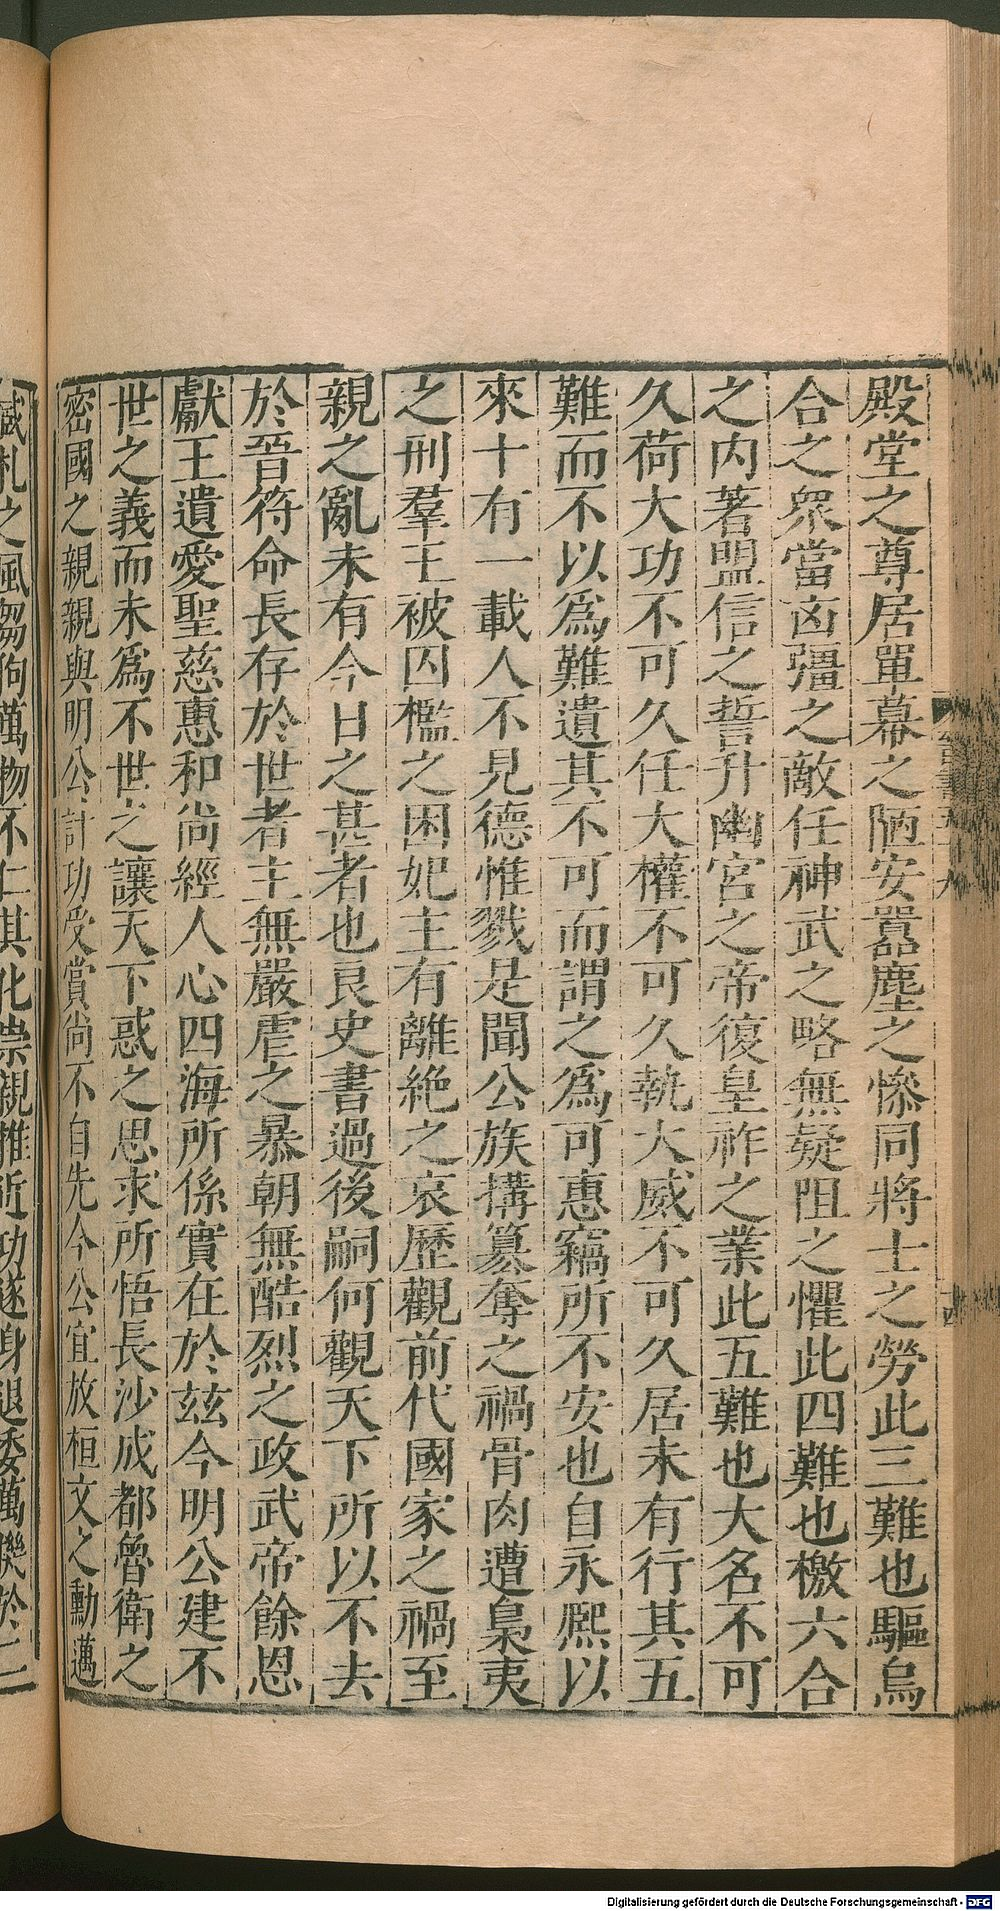 殿堂之尊居單幕之陋安囂塵之慘同將士之勞此三難也驅烏
合之衆當凶彊之敵任神武之略無疑阻之懼此四難也檄六合
之内著盟信之誓升幽宮之帝復皇祚之業此五難也大名不可
久荷大功不可久任大權不可久執大威不可久居未有行其五
難而不以爲難遺其不可而謂之爲可惠竊所不安也自永熈以
來十有一載人不見德惟戮是聞公族搆篡奪之禍骨肉遭梟夷
之刑羣王被囚檻之困妃主有離絶之哀歷觀前代國家之禍至
親之亂未有今日之甚者也良史書過後嗣何觀天下所以不去
於晉符命長存於世者主無嚴虐之暴朝無酷烈之政武帝餘恩
獻王遺愛聖慈惠和尚經人心四海所係實在於兹今明公建不
世之義而未爲不世之讓天下惑之思求所悟長沙成都魯衛之
密國之親親與明公計功受賞尚不自先今公宜放桓文之勳邁
臧札之風芻狗萬物不仁其化崇親推近功遂身退委萬機於二
Digitalisierung gefördert durch die Deutsche Forschungsgemeinschaft - DFG